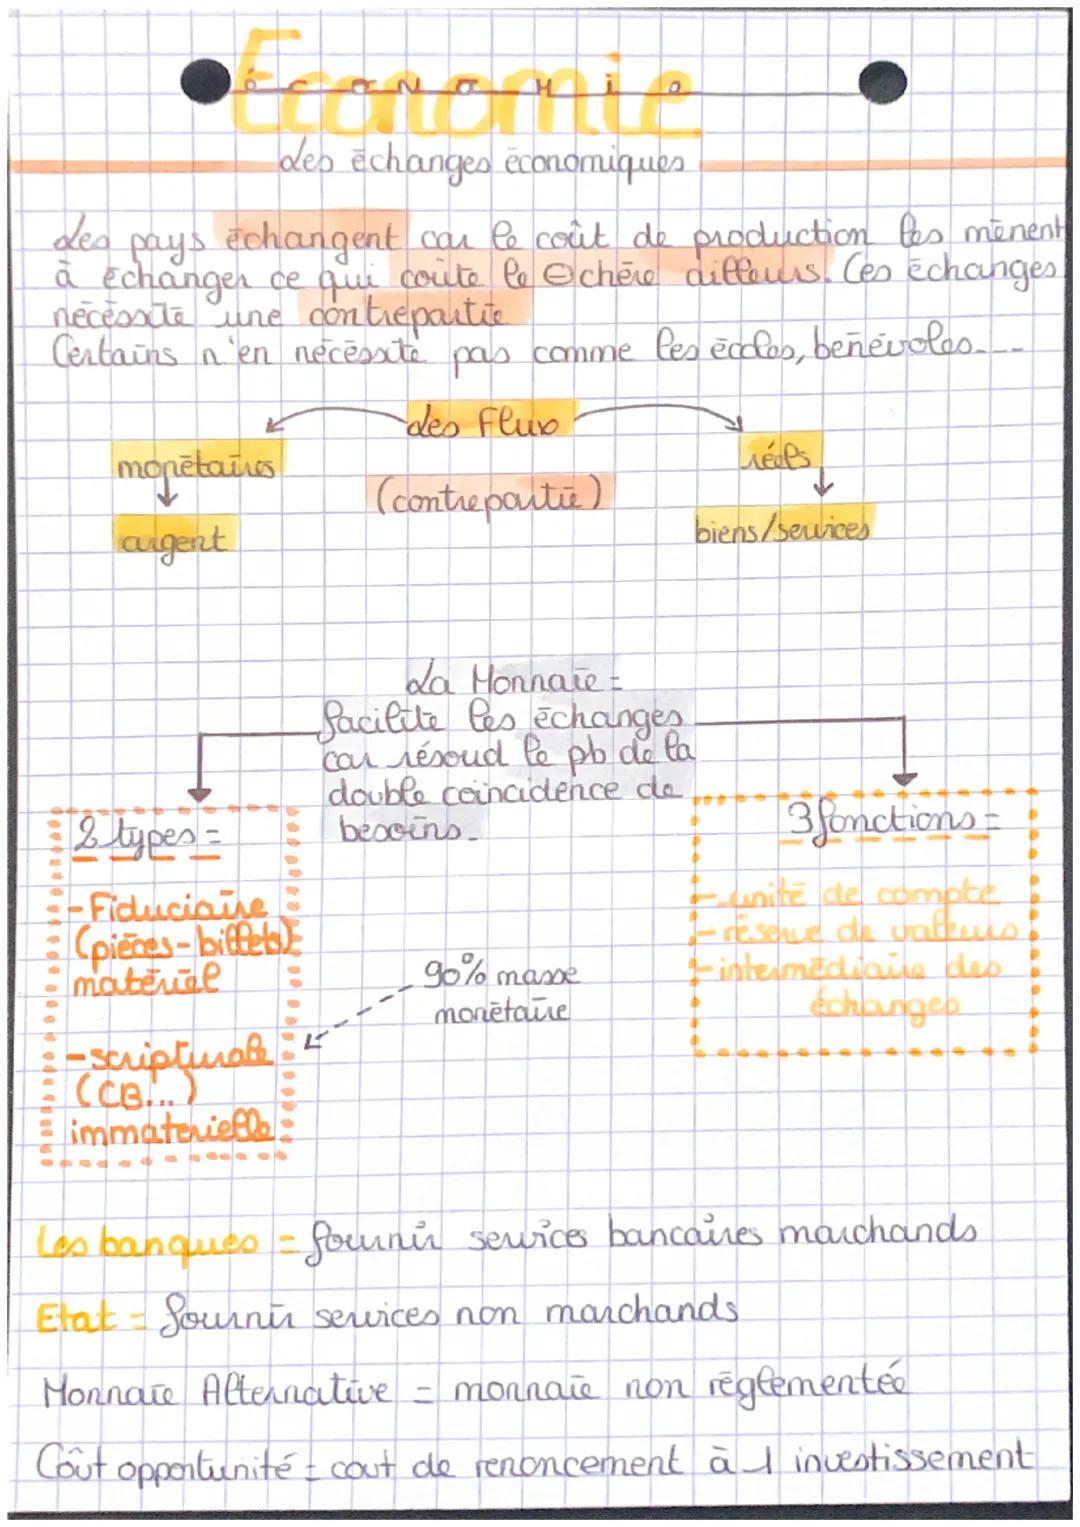 Économie
économie
Les échanges économiques
Les pays échangent car le coût de production les mènent
à échanger ce qui coûte le ⊖ chère ailleurs. Ces échanges
nécéssite une contrepartie
Certains n'en nécéssite pas comme les écoles, bénévoles...
des Flux
monétaires
réels
(contrepartie)
argent
biens/services
La Monnaie =
facilite les échanges
car résoud le pb de la
double coïncidence de
besoins.
2 types =
- Fiduciaire
(pièces-billets)
matériel
- scripturale
(CB...)
immaterielle
90% masse
monétaire
3 fonctions =
- unité de compte
- réserve de valeurs
- intermédiaire des
échanges
Les banques = fournir services bancaires marchands
Etat = fournir services non marchands
Monnaie Alternative = monnaie non réglementée
Coût opportunité = cout de renoncement à 1 investissement